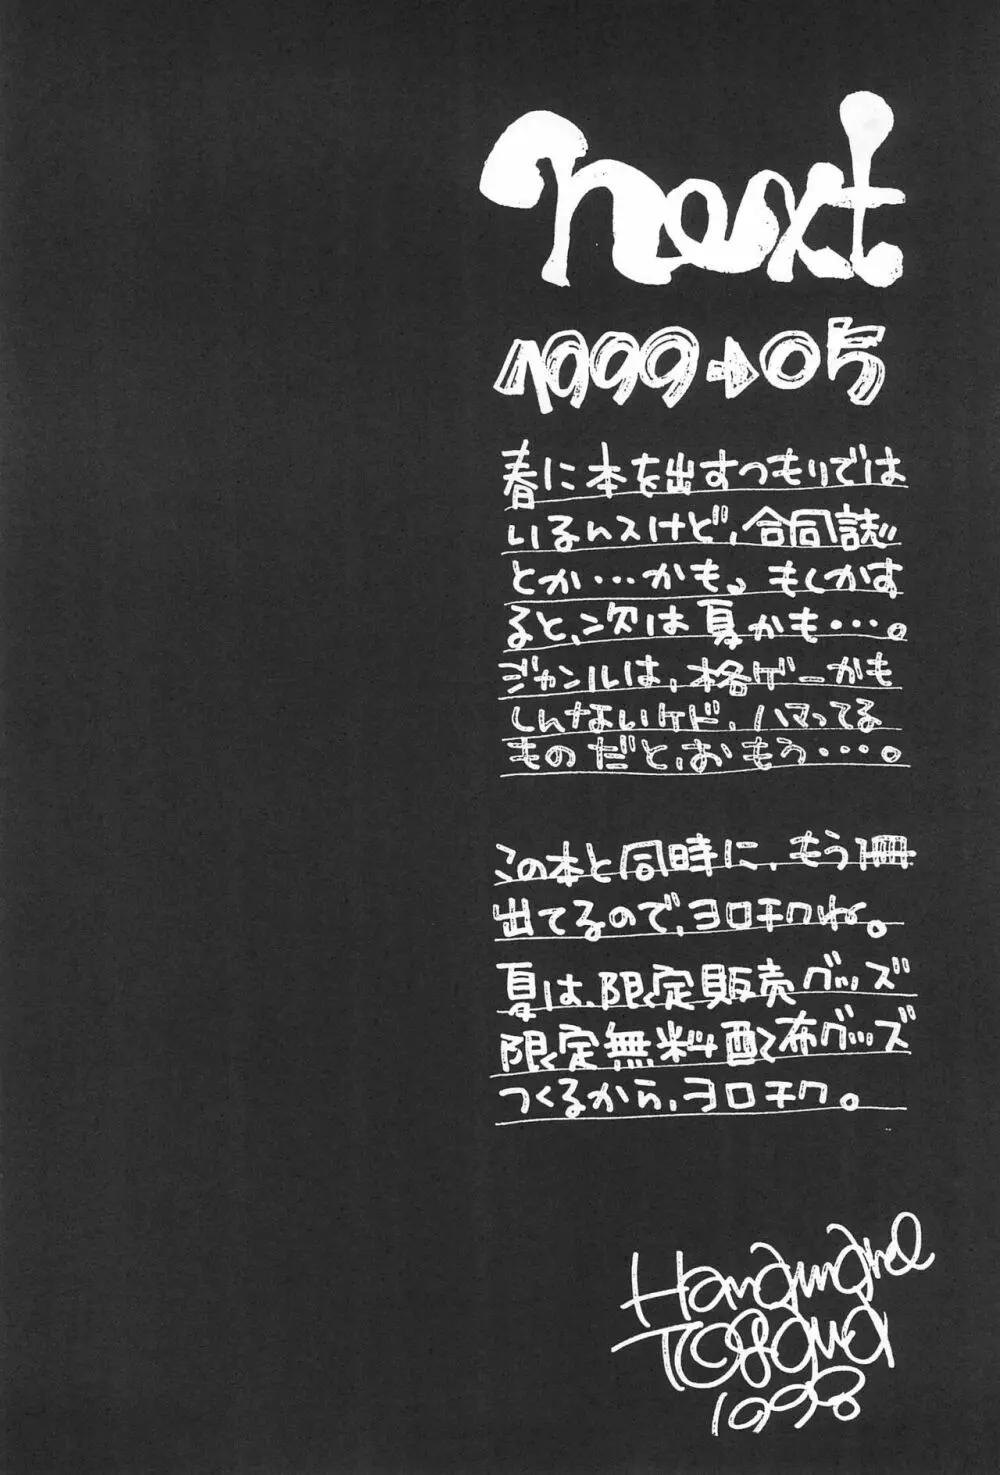 next
1999→05
春に本を出すつもりでは
いるんスけど、合同誌
とか…かも。もしかす
ると、次は夏かも…。
ジャンルは、格ゲーかも
しんないケド、ハマってる
ものだと、おもう…。
この本と同時に、もう1冊
出てるので、ヨロチクね。
夏は、限定販売グッズ
限定無料配布グッズ
つくるから、ヨロチク。
1998